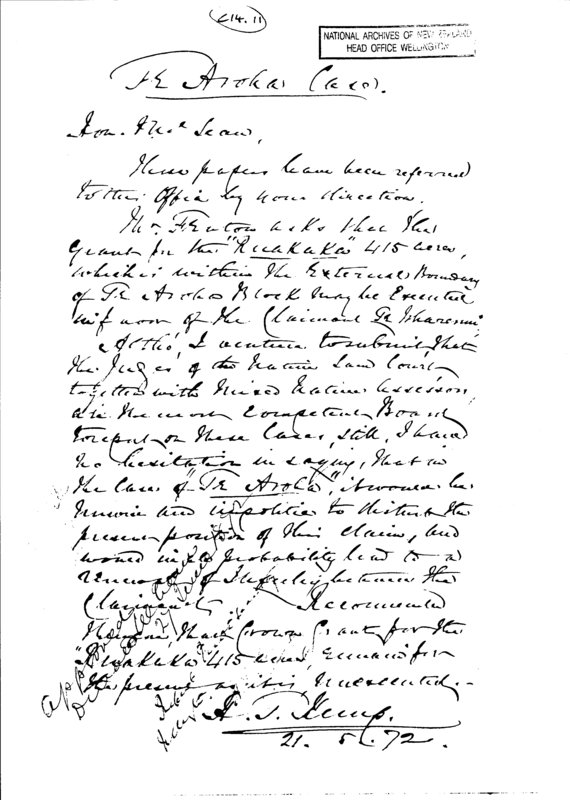 C14.11
NATIONAL ARCHIVES OF NEW ZEALAND
HEAD OFFICE WELLINGTON
Te Aroha Case.
Hon.
These papers have been referred
to this Office by your direction.
Mr. Fenton asks that the
Grant for the "Ruakaka" 415 acres,
which is within the External Boundary
of Te Aroha Block may be Executed
in favor of the Claimant
Altho', I venture to submit, that
the Judges of the Native Land Court
together with Native Assessors,
are the most Competent Board
to report on these Cases, still, I have
no hesitation in saying, that in
the Case of "Te Aroha", it would be
unwise and impolitic to disturb the
present position of this Claim, and
would in all probability lead to a
renewal of between the
Claimants. Recommended
that Crown Grant for the
"Ruakaka" 415 acres, remain for
the present as it is, unexecuted.
H. T. Kemp.
21. 5. 72.
approved